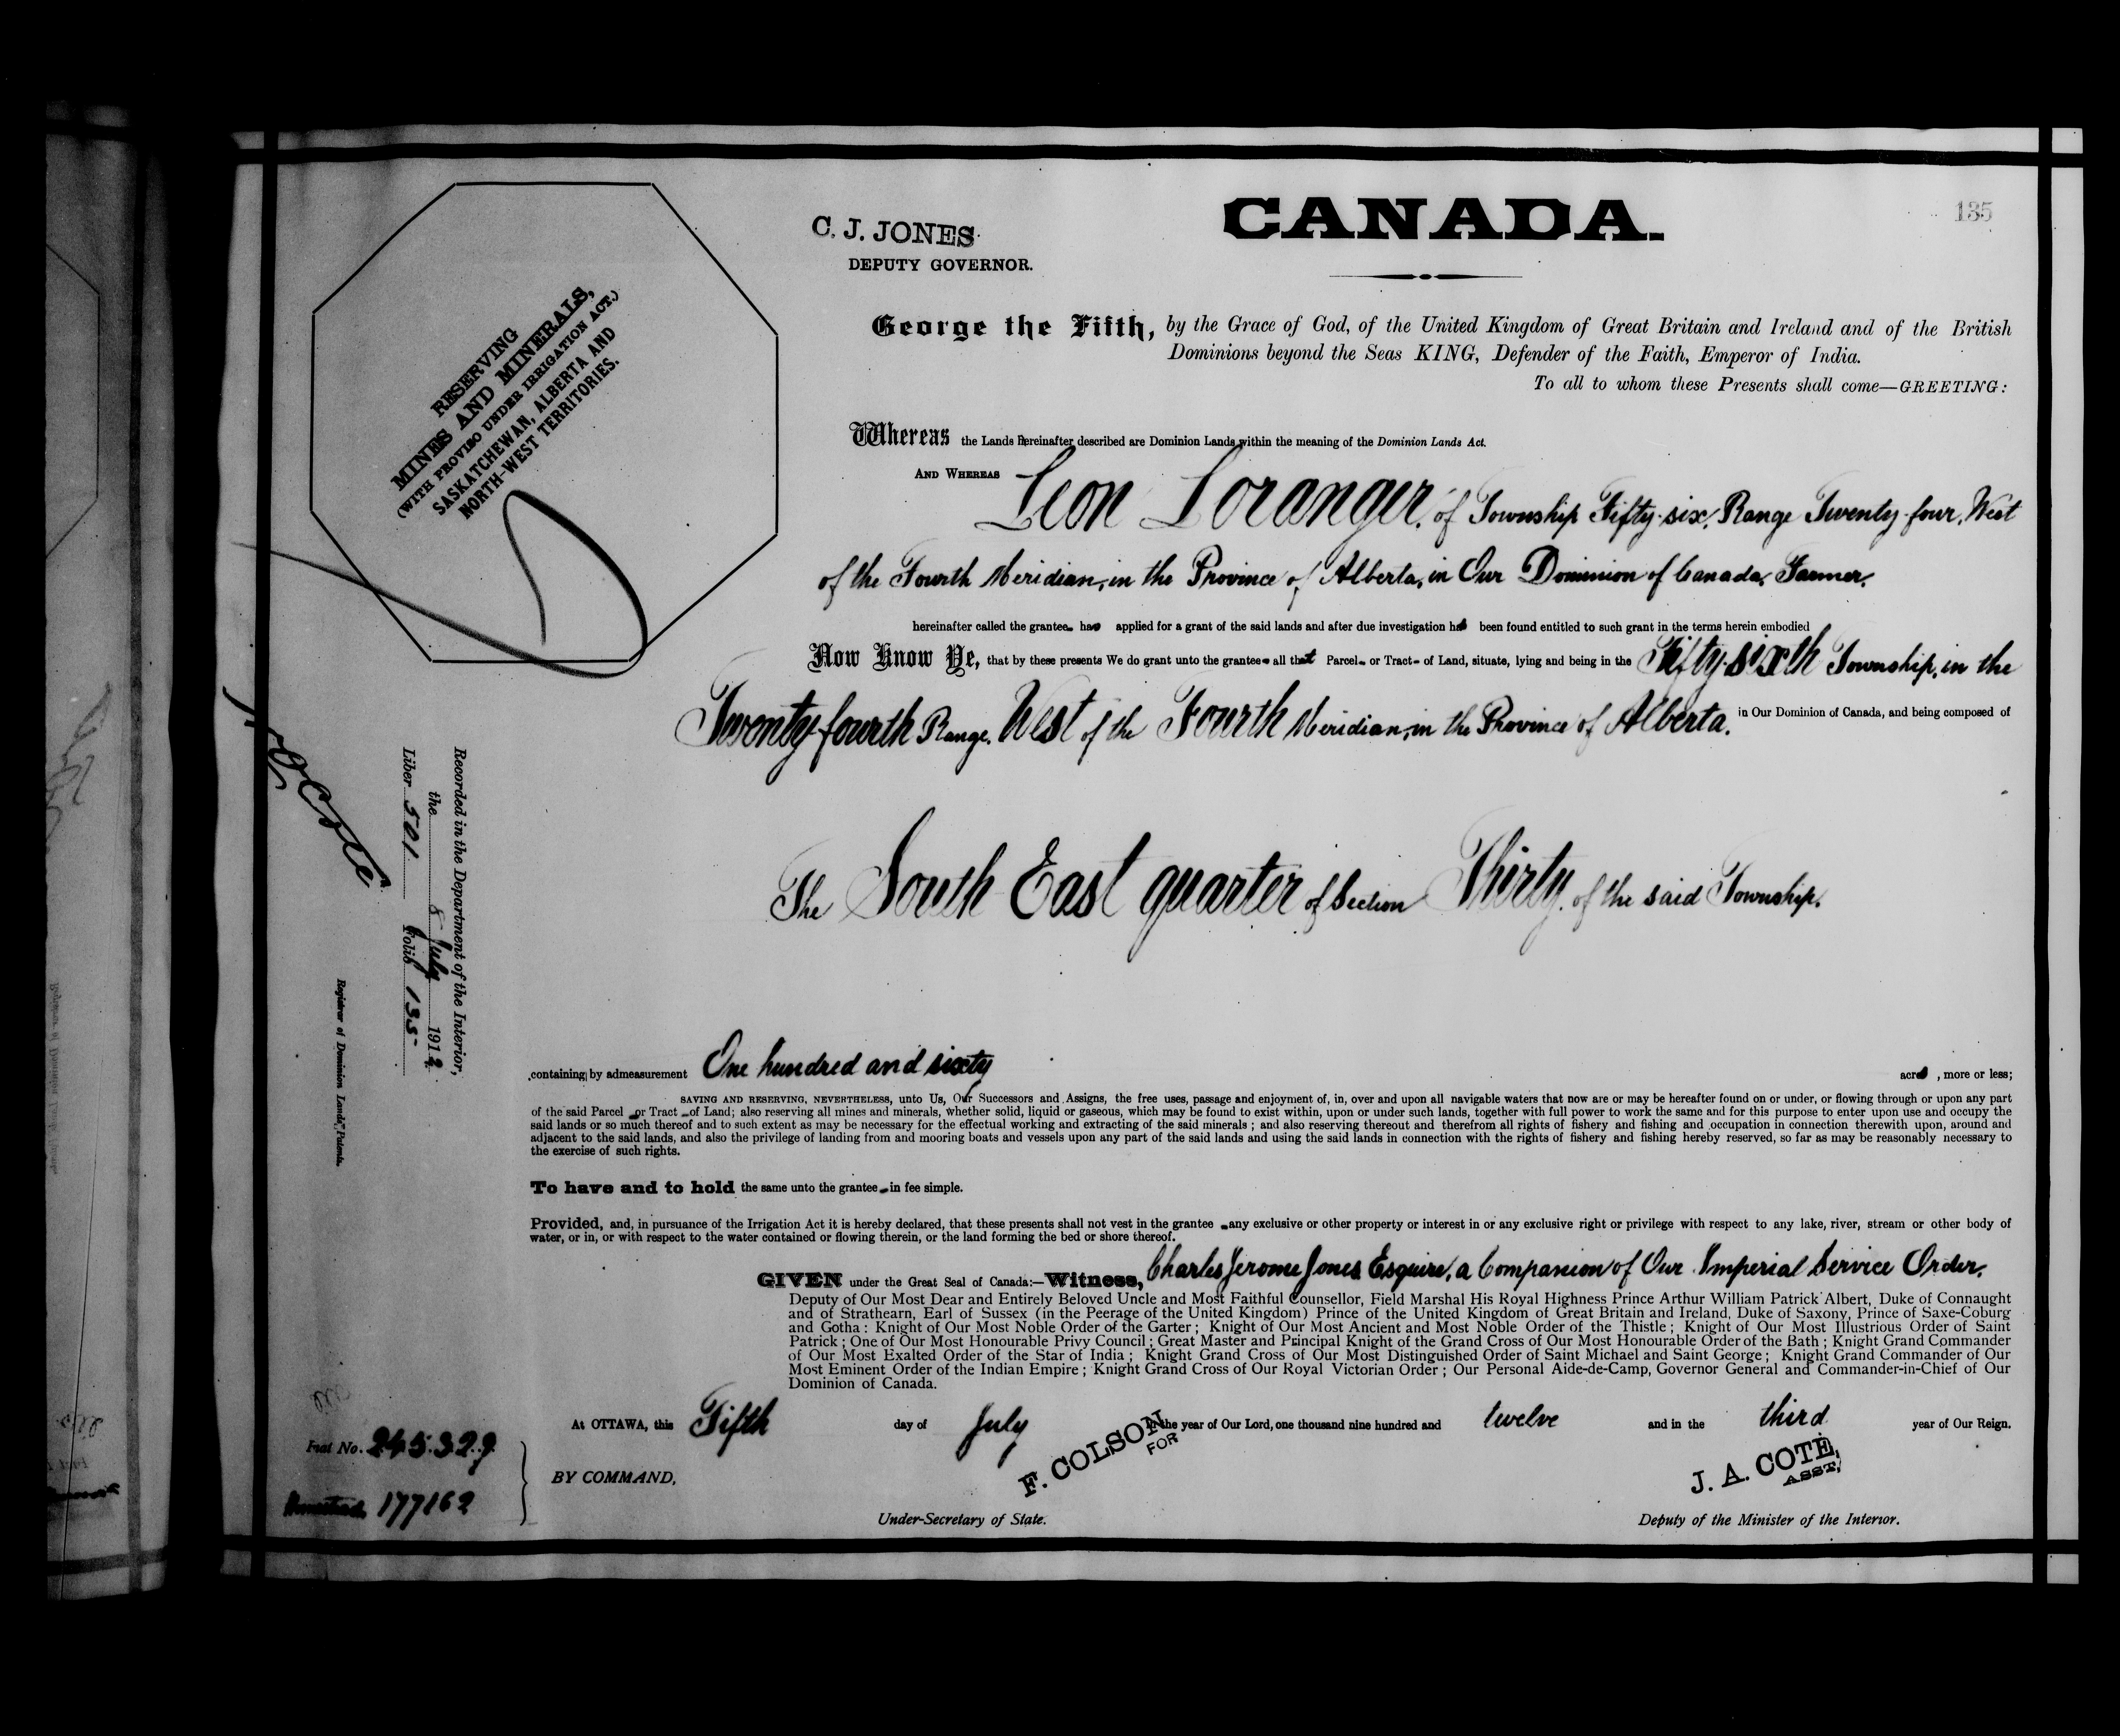 135
CANADA.
C. J. JONES
DEPUTY GOVERNOR.
RESERVING
MINES AND MINERALS,
(WITH PROVISO UNDER IRRIGATION ACT.)
SASKATCHEWAN, ALBERTA AND
NORTH-WEST TERRITORIES.
George the Fifth, by the Grace of God, of the United Kingdom of Great Britain and Ireland and of the British
Dominions beyond the Seas KING, Defender of the Faith, Emperor of India.
To all to whom these Presents shall come—GREETING:
Whereas the Lands hereinafter described are Dominion Lands within the meaning of the Dominion Lands Act.
AND WHEREAS Leon Loranger, of Township Fifty-six, Range Twenty-four, West
of the Fourth Meridian, in the Province of Alberta, in Our Dominion of Canada, Farmer,
hereinafter called the grantee has applied for a grant of the said lands and after due investigation has been found entitled to such grant in the terms herein embodied
Now Know Ye, that by these presents We do grant unto the grantee all that Parcel or Tract of Land, situate, lying and being in the Fifty-sixth Township, in the
Twenty-fourth Range, West of the Fourth Meridian, in the Province of Alberta, in Our Dominion of Canada, and being composed of
The South East quarter of Section Thirty, of the said Township,
containing by admeasurement One hundred and sixty acres, more or less;
SAVING AND RESERVING, NEVERTHELESS, unto Us, Our Successors and Assigns, the free uses, passage and enjoyment of, in, over and upon all navigable waters that now are or may be hereafter found on or under, or flowing through or upon any part
of the said Parcel or Tract of Land; also reserving all mines and minerals, whether solid, liquid or gaseous, which may be found to exist within, upon or under such lands, together with full power to work the same and for this purpose to enter upon use and occupy the
said lands or so much thereof and to such extent as may be necessary for the effectual working and extracting of the said minerals; and also reserving thereout and therefrom all rights of fishery and fishing and occupation in connection therewith upon, around and
adjacent to the said lands, and also the privilege of landing from and mooring boats and vessels upon any part of the said lands and using the said lands in connection with the rights of fishery and fishing hereby reserved, so far as may be reasonably necessary to
the exercise of such rights.
To have and to hold the same unto the grantee in fee simple.
Provided, and, in pursuance of the Irrigation Act it is hereby declared, that these presents shall not vest in the grantee any exclusive or other property or interest in or any exclusive right or privilege with respect to any lake, river, stream or other body of
water, or in, or with respect to the water contained or flowing therein, or the land forming the bed or shore thereof.
GIVEN under the Great Seal of Canada:—Witness, Charles Jerome Jones Esquire, a Companion of Our Imperial Service Order,
Deputy of Our Most Dear and Entirely Beloved Uncle and Most Faithful Counsellor, Field Marshal His Royal Highness Prince Arthur William Patrick Albert, Duke of Connaught
and of Strathearn, Earl of Sussex (in the Peerage of the United Kingdom) Prince of the United Kingdom of Great Britain and Ireland, Duke of Saxony, Prince of Saxe-Coburg
and Gotha: Knight of Our Most Noble Order of the Garter; Knight of Our Most Ancient and Most Noble Order of the Thistle; Knight of Our Most Illustrious Order of Saint
Patrick; One of Our Most Honourable Privy Council; Great Master and Principal Knight of the Grand Cross of Our Most Honourable Order of the Bath; Knight Grand Commander
of Our Most Exalted Order of the Star of India; Knight Grand Cross of Our Most Distinguished Order of Saint Michael and Saint George; Knight Grand Commander of Our
Most Eminent Order of the Indian Empire; Knight Grand Cross of Our Royal Victorian Order; Our Personal Aide-de-Camp, Governor General and Commander-in-Chief of Our
Dominion of Canada.
At OTTAWA, this Fifth day of July in the year of Our Lord, one thousand nine hundred and twelve and in the third year of Our Reign.
BY COMMAND,
F. COLSON
FOR
Under-Secretary of State.
J. A. COTÉ,
ASST,
Deputy of the Minister of the Interior.
Recorded in the Department of the Interior,
the 8 July 1912
Liber 501 Folio 135
Registrar of Dominion Lands Patents.
Fiat No. 245329
Homestead 177162